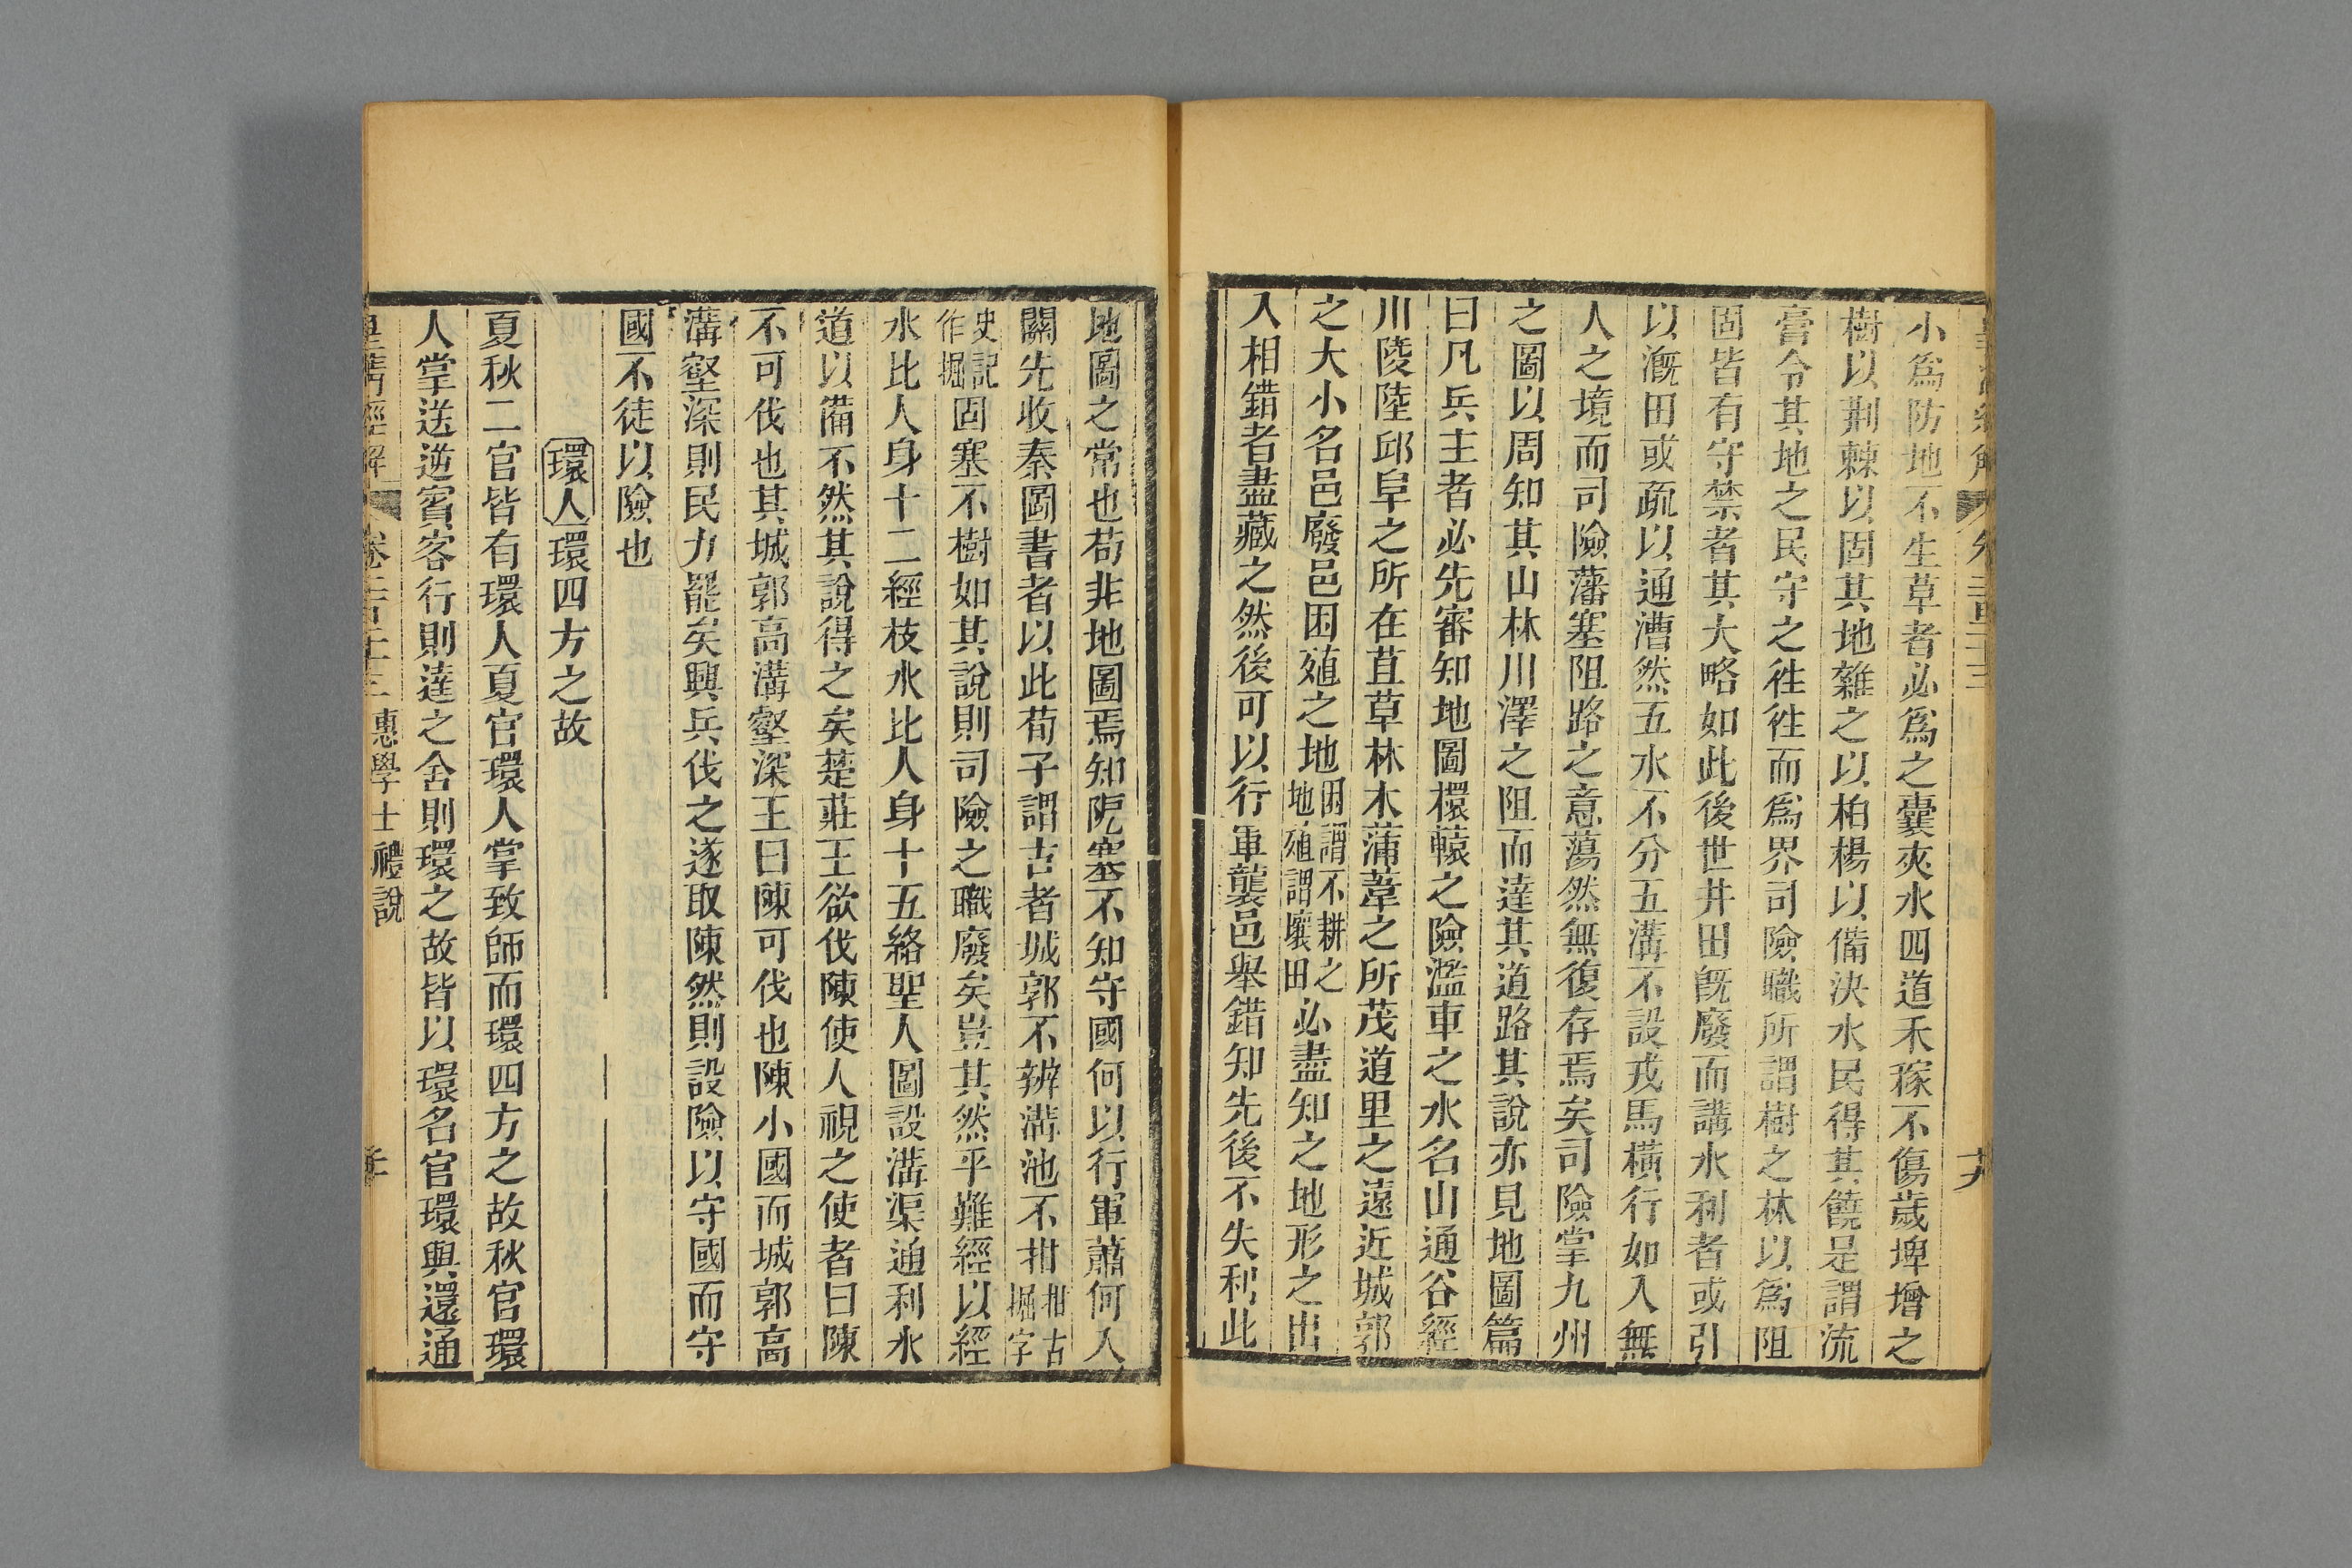 小爲防地不生草者必爲之囊夾水四道禾稼不傷歲埤增之
樹以荆棘以固其地雜之以柏楊以備決水民得其饒是謂流
膏令其地之民守之徃徃而爲界司險職所謂樹之林以爲阻
固皆有守禁者其大略如此後世井田旣廢而講水利者或引
以漑田或疏以通漕然五水不分五溝不設戎馬橫行如入無
人之境而司險藩塞阻路之意蕩然無復存焉矣司險掌九州
之圖以周知其山林川澤之阻而達其道路其說亦見地圖篇
曰凡兵主者必先審知地圖轘轅之險濫車之水名山通谷經
川陵陸邱阜之所在苴草林木蒲葦之所茂道里之遠近城郭
之大小名邑廢邑困殖之地困謂不耕之地殖謂壤田必盡知之地形之出
入相錯者盡藏之然後可以行軍襲邑舉錯知先後不失利此
地圖之常也苟非地圖焉知阨塞不知守國何以行軍蕭何入
關先收秦圖書者以此荀子謂古者城郭不辨溝池不抇抇古掘字
史記作堀固塞不樹如其說則司險之職廢矣豈其然乎難經以經
水比人身十二經枝水比人身十五絡聖人圖設溝渠通利水
道以備不然其說得之矣楚莊王欲伐陳使人視之使者曰陳
不可伐也其城郭高溝壑深王曰陳可伐也陳小國而城郭高
溝壑深則民力罷矣興兵伐之遂取陳然則設險以守國而守
國不徒以險也
環人環四方之故
夏秋二官皆有環人夏官環人掌致師而環四方之故秋官環
人掌送逆賓客行則達之舍則環之故皆以環名官環與還通
皇清經解 卷二百二十三 惠學士禮說